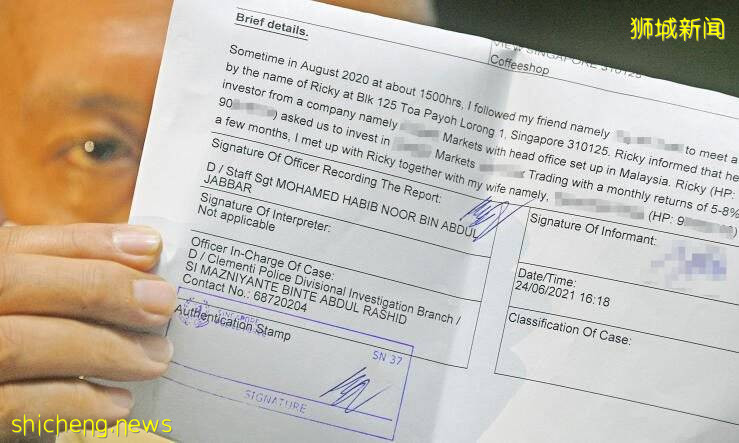 狮城新闻
Brief details.
VIEW SINGAPORE 310125
Coffeeshop
Sometime in August 2020 at about 1500hrs, I followed my friend namely to meet a
by the name of Ricky at Blk 125 Toa Payoh Lorong 1, Singapore 310125. Ricky informed that he
investor from a company namely Markets with head office set up in Malaysia. Ricky (HP:
90 ) asked us to invest in Markets Trading with a monthly returns of 5-8%
a few months, I met up with Ricky together with my wife namely, (HP: 9
Signature Of Officer Recording The Report:
D / Staff Sgt MOHAMED HABIB NOOR BIN ABDUL
JABBAR
Signature Of Interpreter:
Not applicable
Officer In-Charge Of Case:
D / Clementi Police Divisional Investigation Branch /
SI MAZNIYANTE BINTE ABDUL RASHID
Contact No.: 68720204
Authentication Stamp
SINGAPORE
SN 37
SIGNATURE
Signature Of Informant:
Date/Time:
24/06/2021 16:18
Classification Of Case:
shicheng.news